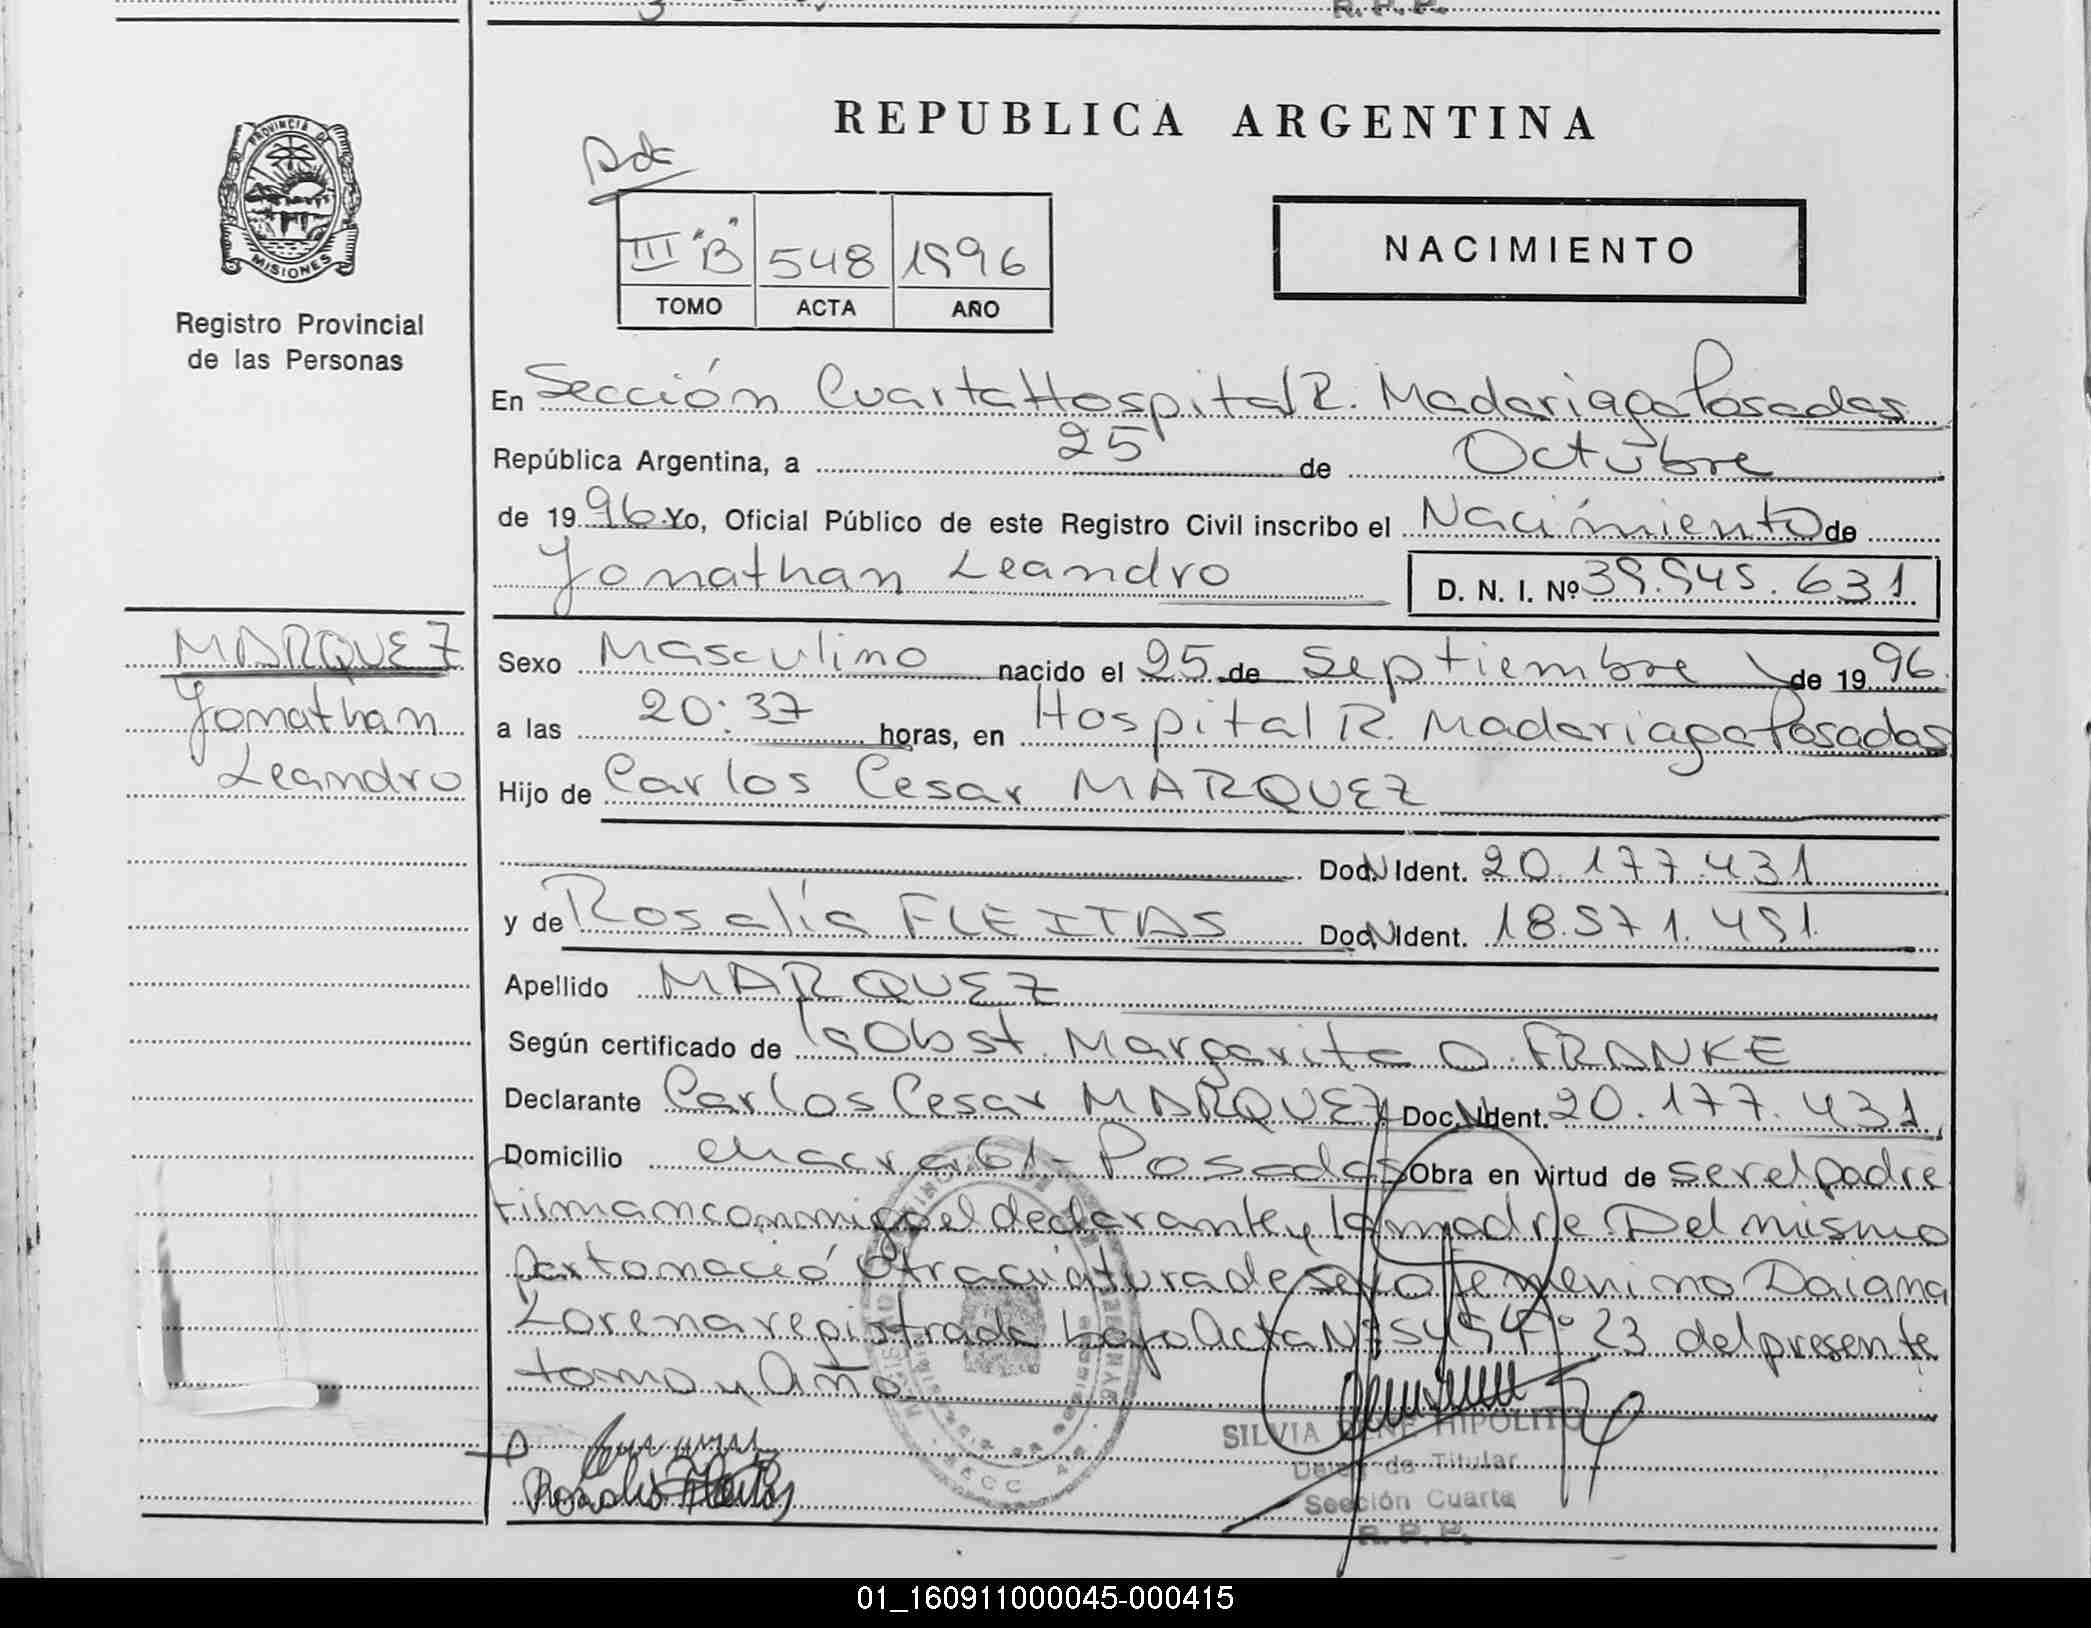 R. P. P.
PROVINCIA DE
MISIONES
Registro Provincial
de las Personas
REPUBLICA ARGENTINA
III "B" 548 1996
TOMO ACTA AÑO
NACIMIENTO
En Sección Cuarta Hospital R. Madariaga Posadas
República Argentina, a 25 de Octubre
de 1996. Yo, Oficial Público de este Registro Civil inscribo el Nacimiento de
Jonathan Leandro D. N. I. Nº 39.945.631
MARQUEZ
Jonathan
Leandro
Sexo Masculino nacido el 25 de Septiembre de 1996.
a las 20:37 horas, en Hospital R. Madariaga Posadas
Hijo de Carlos Cesar MARQUEZ
Doc. N Ident. 20.177.431
y de Rosalía FLEITAS Doc. N Ident. 18.571.451.
Apellido MARQUEZ
Según certificado de la Obst. Margarita O. FRANKE
Declarante Carlos Cesar MARQUEZ Doc. N Ident. 20.177.431
Domicilio chacra 61 - Posadas Obra en virtud de ser el padre
Firman conmigo el declarante y la madre. Del mismo
parto nació otra criatura de sexo femenino Daiana
Lorena registrada bajo Acta Nº 549 Fº 23 del presente
tomo y Año
SILVIA RENE HIPOLITO
Delegada Titular
Sección Cuarta
R. P. P.
01_160911000045-000415